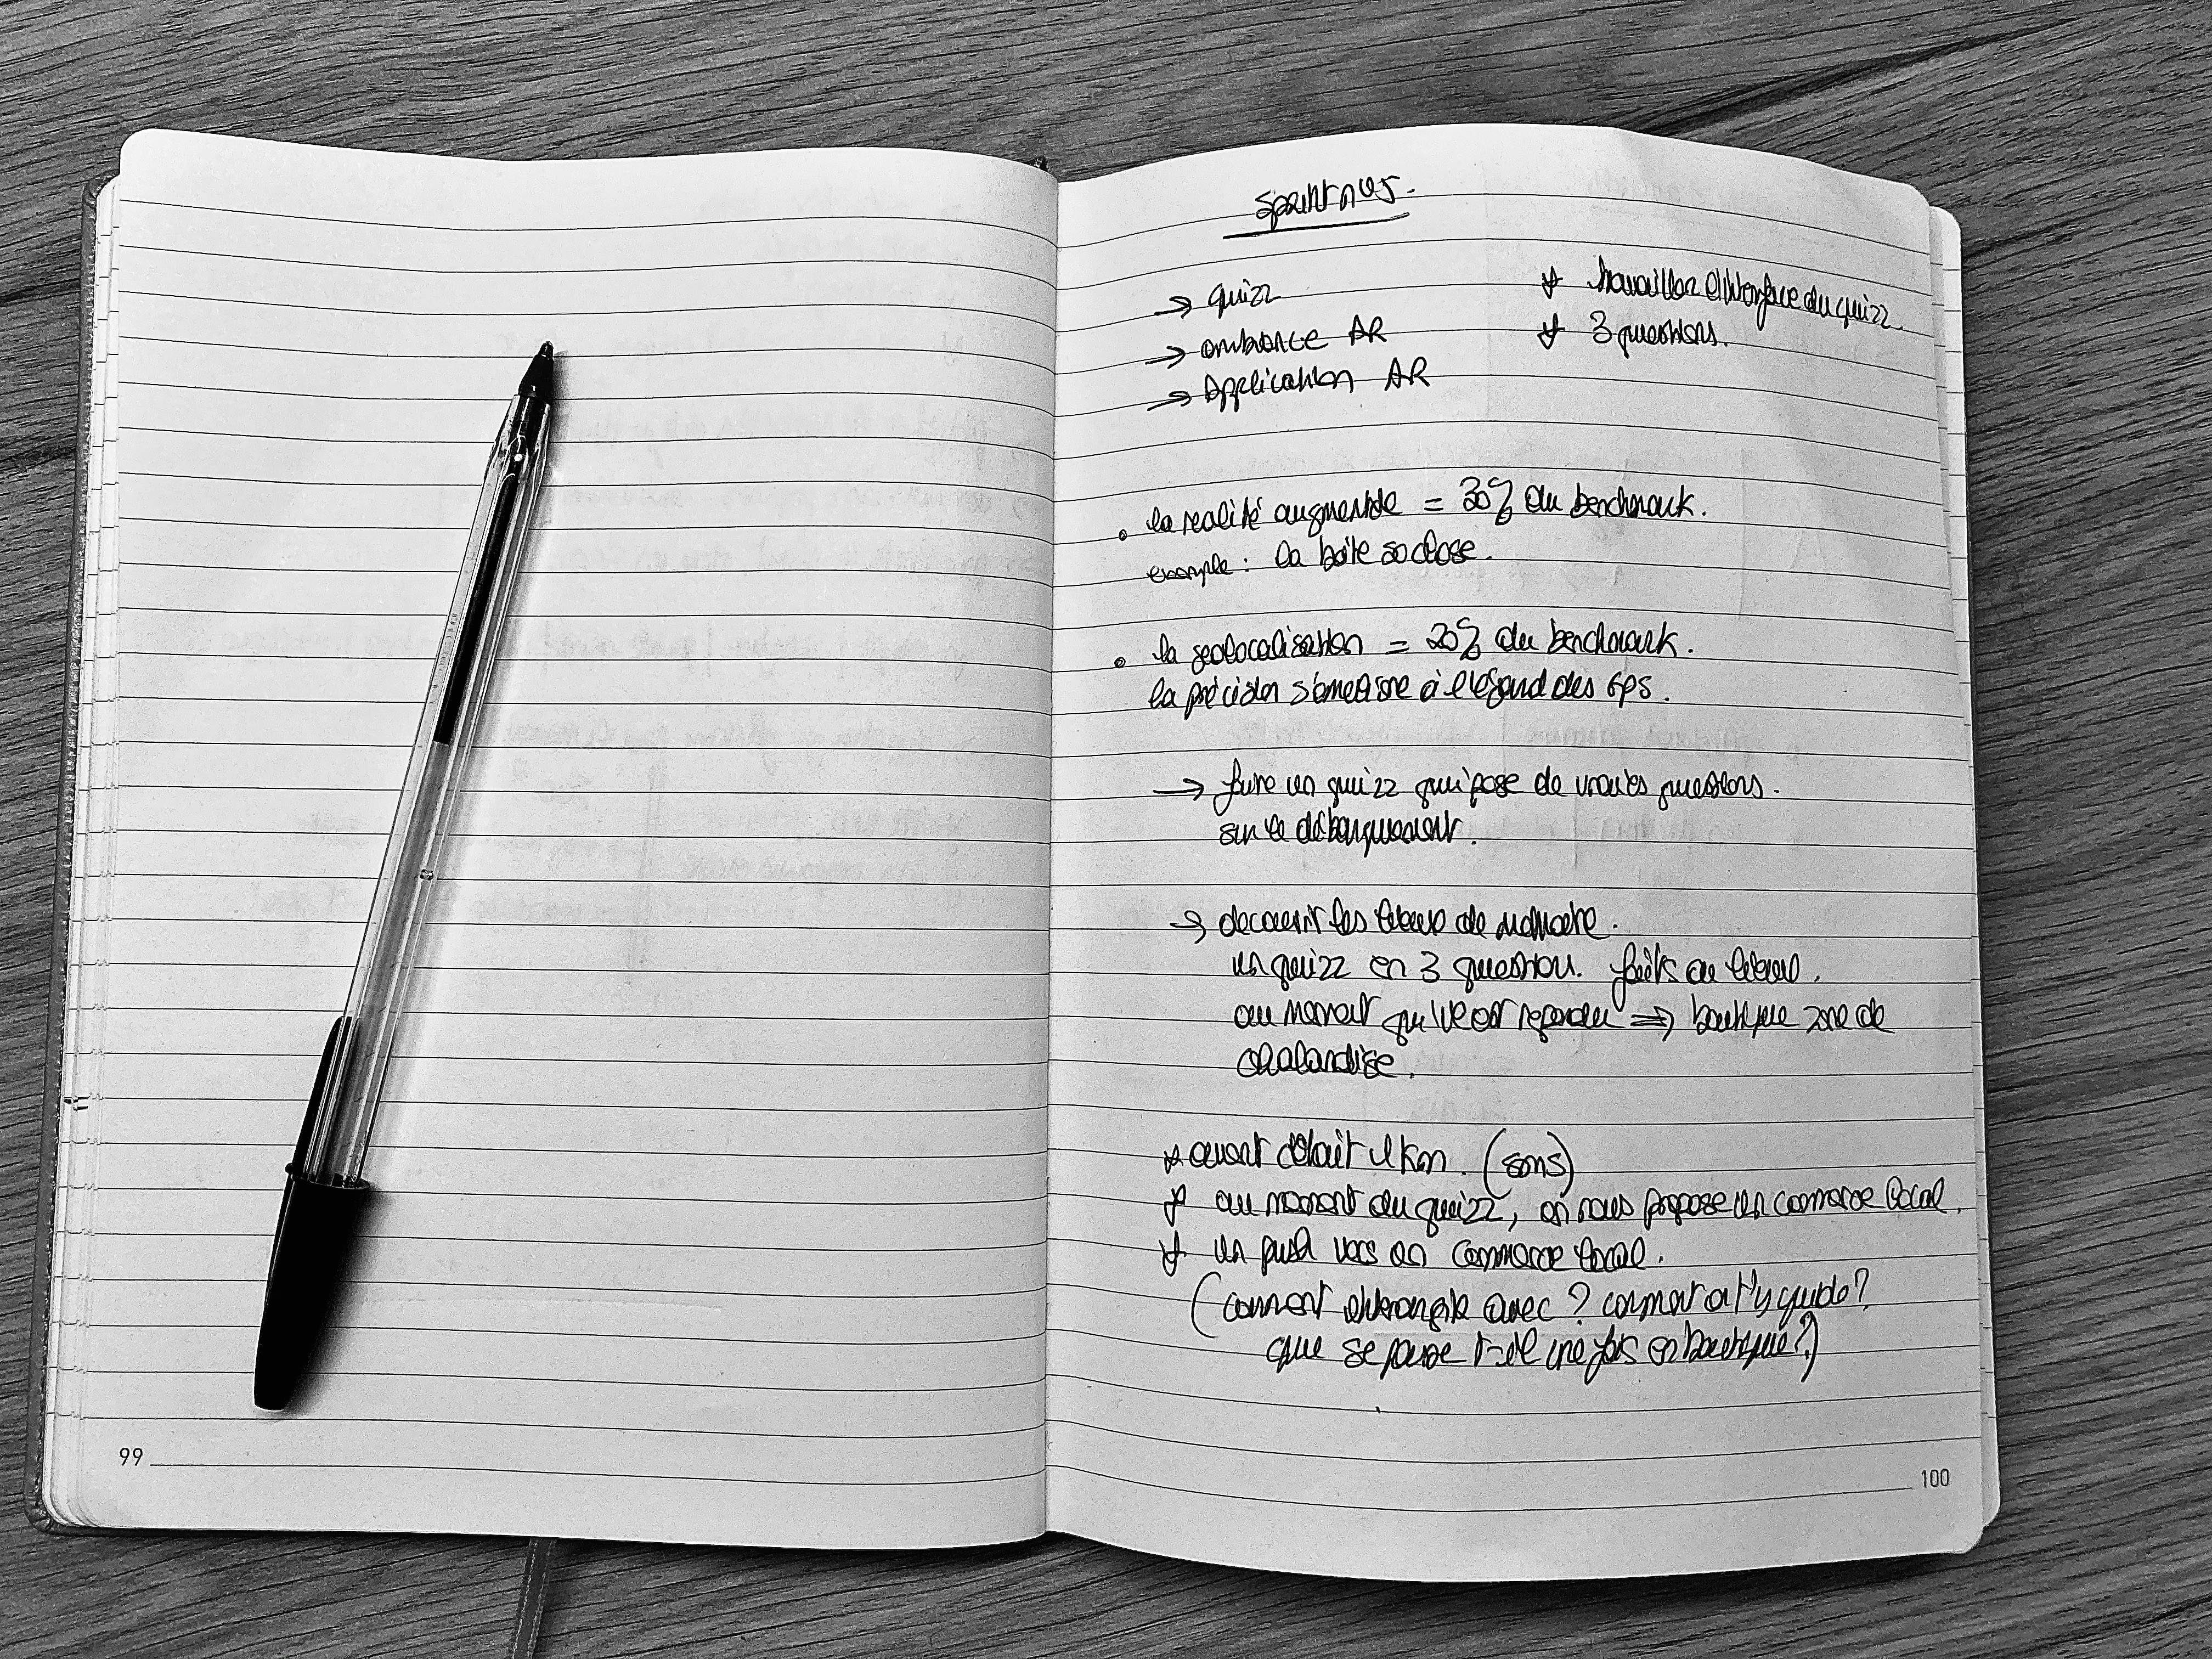 Sprint n°5.
→ quizz
→ ambiance AR
→ Application AR
travailler l'interface du quizz.
3 questions.
• la realité augmentée = 30% du benchmark.
exemple : la boîte so close.
• la geolocalisation = 20% du benchmark.
la précision à l'égard des GPS.
→ faire un quizz qui pose de vraies questions
sur le débarquement.
→ decouvrir les lieux de mémoire.
un quizz en 3 question. faits au
au moment qu'il est repondu ⇒ boutique zone de
chalandise.
avant c'était 1 km. (sons)
au moment du quizz, on nous propose un commerce local.
un push vers un commerce local.
(comment avec ? comment on t'y guide ?
que se passe t-il une fois en boutique ?)
99
100